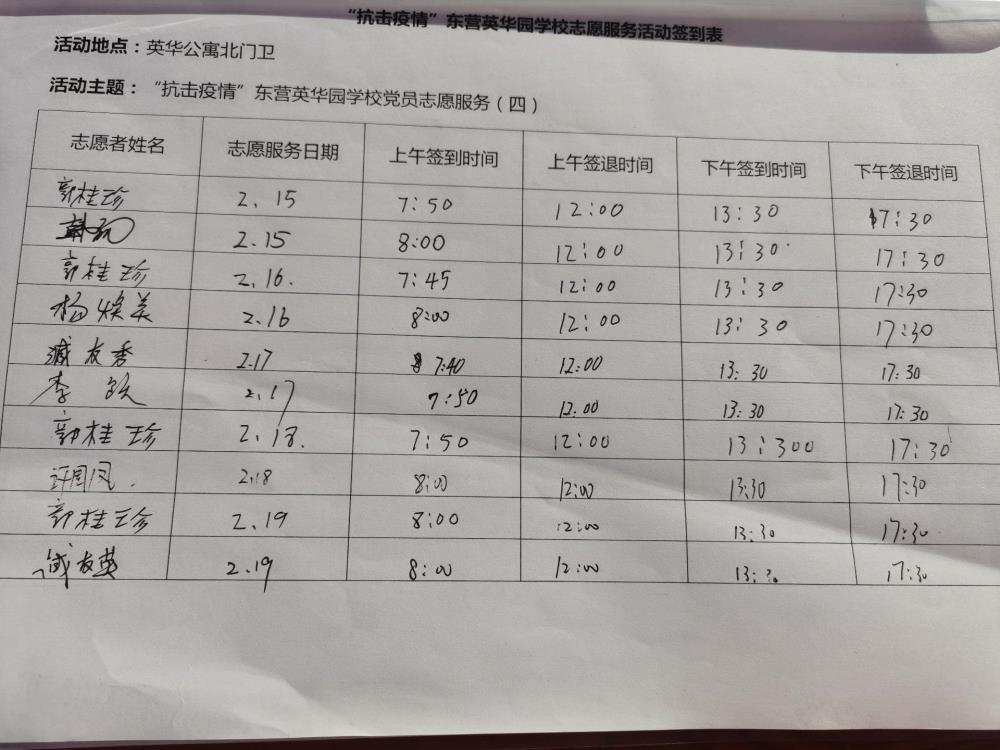 “抗击疫情”东营英华园学校志愿服务活动签到表
活动地点：英华公寓北门卫
活动主题：“抗击疫情”东营英华园学校党员志愿服务（四）
志愿者姓名 志愿服务日期 上午签到时间 上午签退时间 下午签到时间 下午签退时间
郭桂珍 2.15 7:50 12:00 13:30 17:30
2.15 8:00 12:00 13:30 17:30
郭桂珍 2.16. 7:45 12:00 13:30 17:30
杨焕美 2.16 8:00 12:00 13:30 17:30
臧友秀 2.17 7:40 12:00 13:30 17:30
李 2.17 7:50 12:00 13:30 17:30
郭桂珍 2.18. 7:50 12:00 13:300 17:30
许国凤. 2.18 8:00 12:00 13:30 17:30
郭桂珍 2.19 8:00 12:00 13:30 17:30
臧友英 2.19 8:00 12:00 13:30 17:30